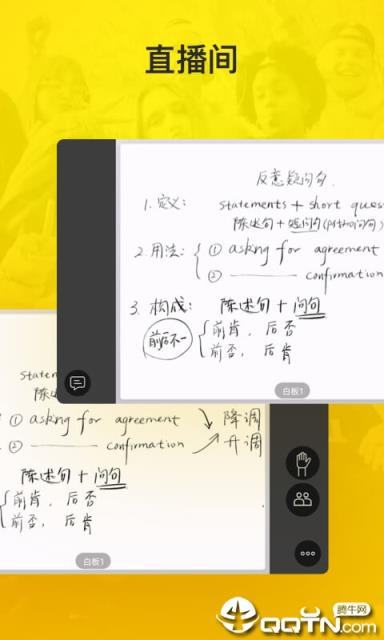 直播间
反意疑问句
1. 定义: statements + short ques
陈述句 + 短问句(附加问句)
2. 用法: ① asking for agreement
② ——— confirmation
3. 构成: 陈述句 + 问句
前后不一 前肯, 后否
前否, 后肯
白板1
statem
陈述
① asking for agreement 降调
② ——— confirmation 升调
陈述句 + 问句
前肯, 后否
前否, 后肯
白板1
腾牛网
QQTN.com